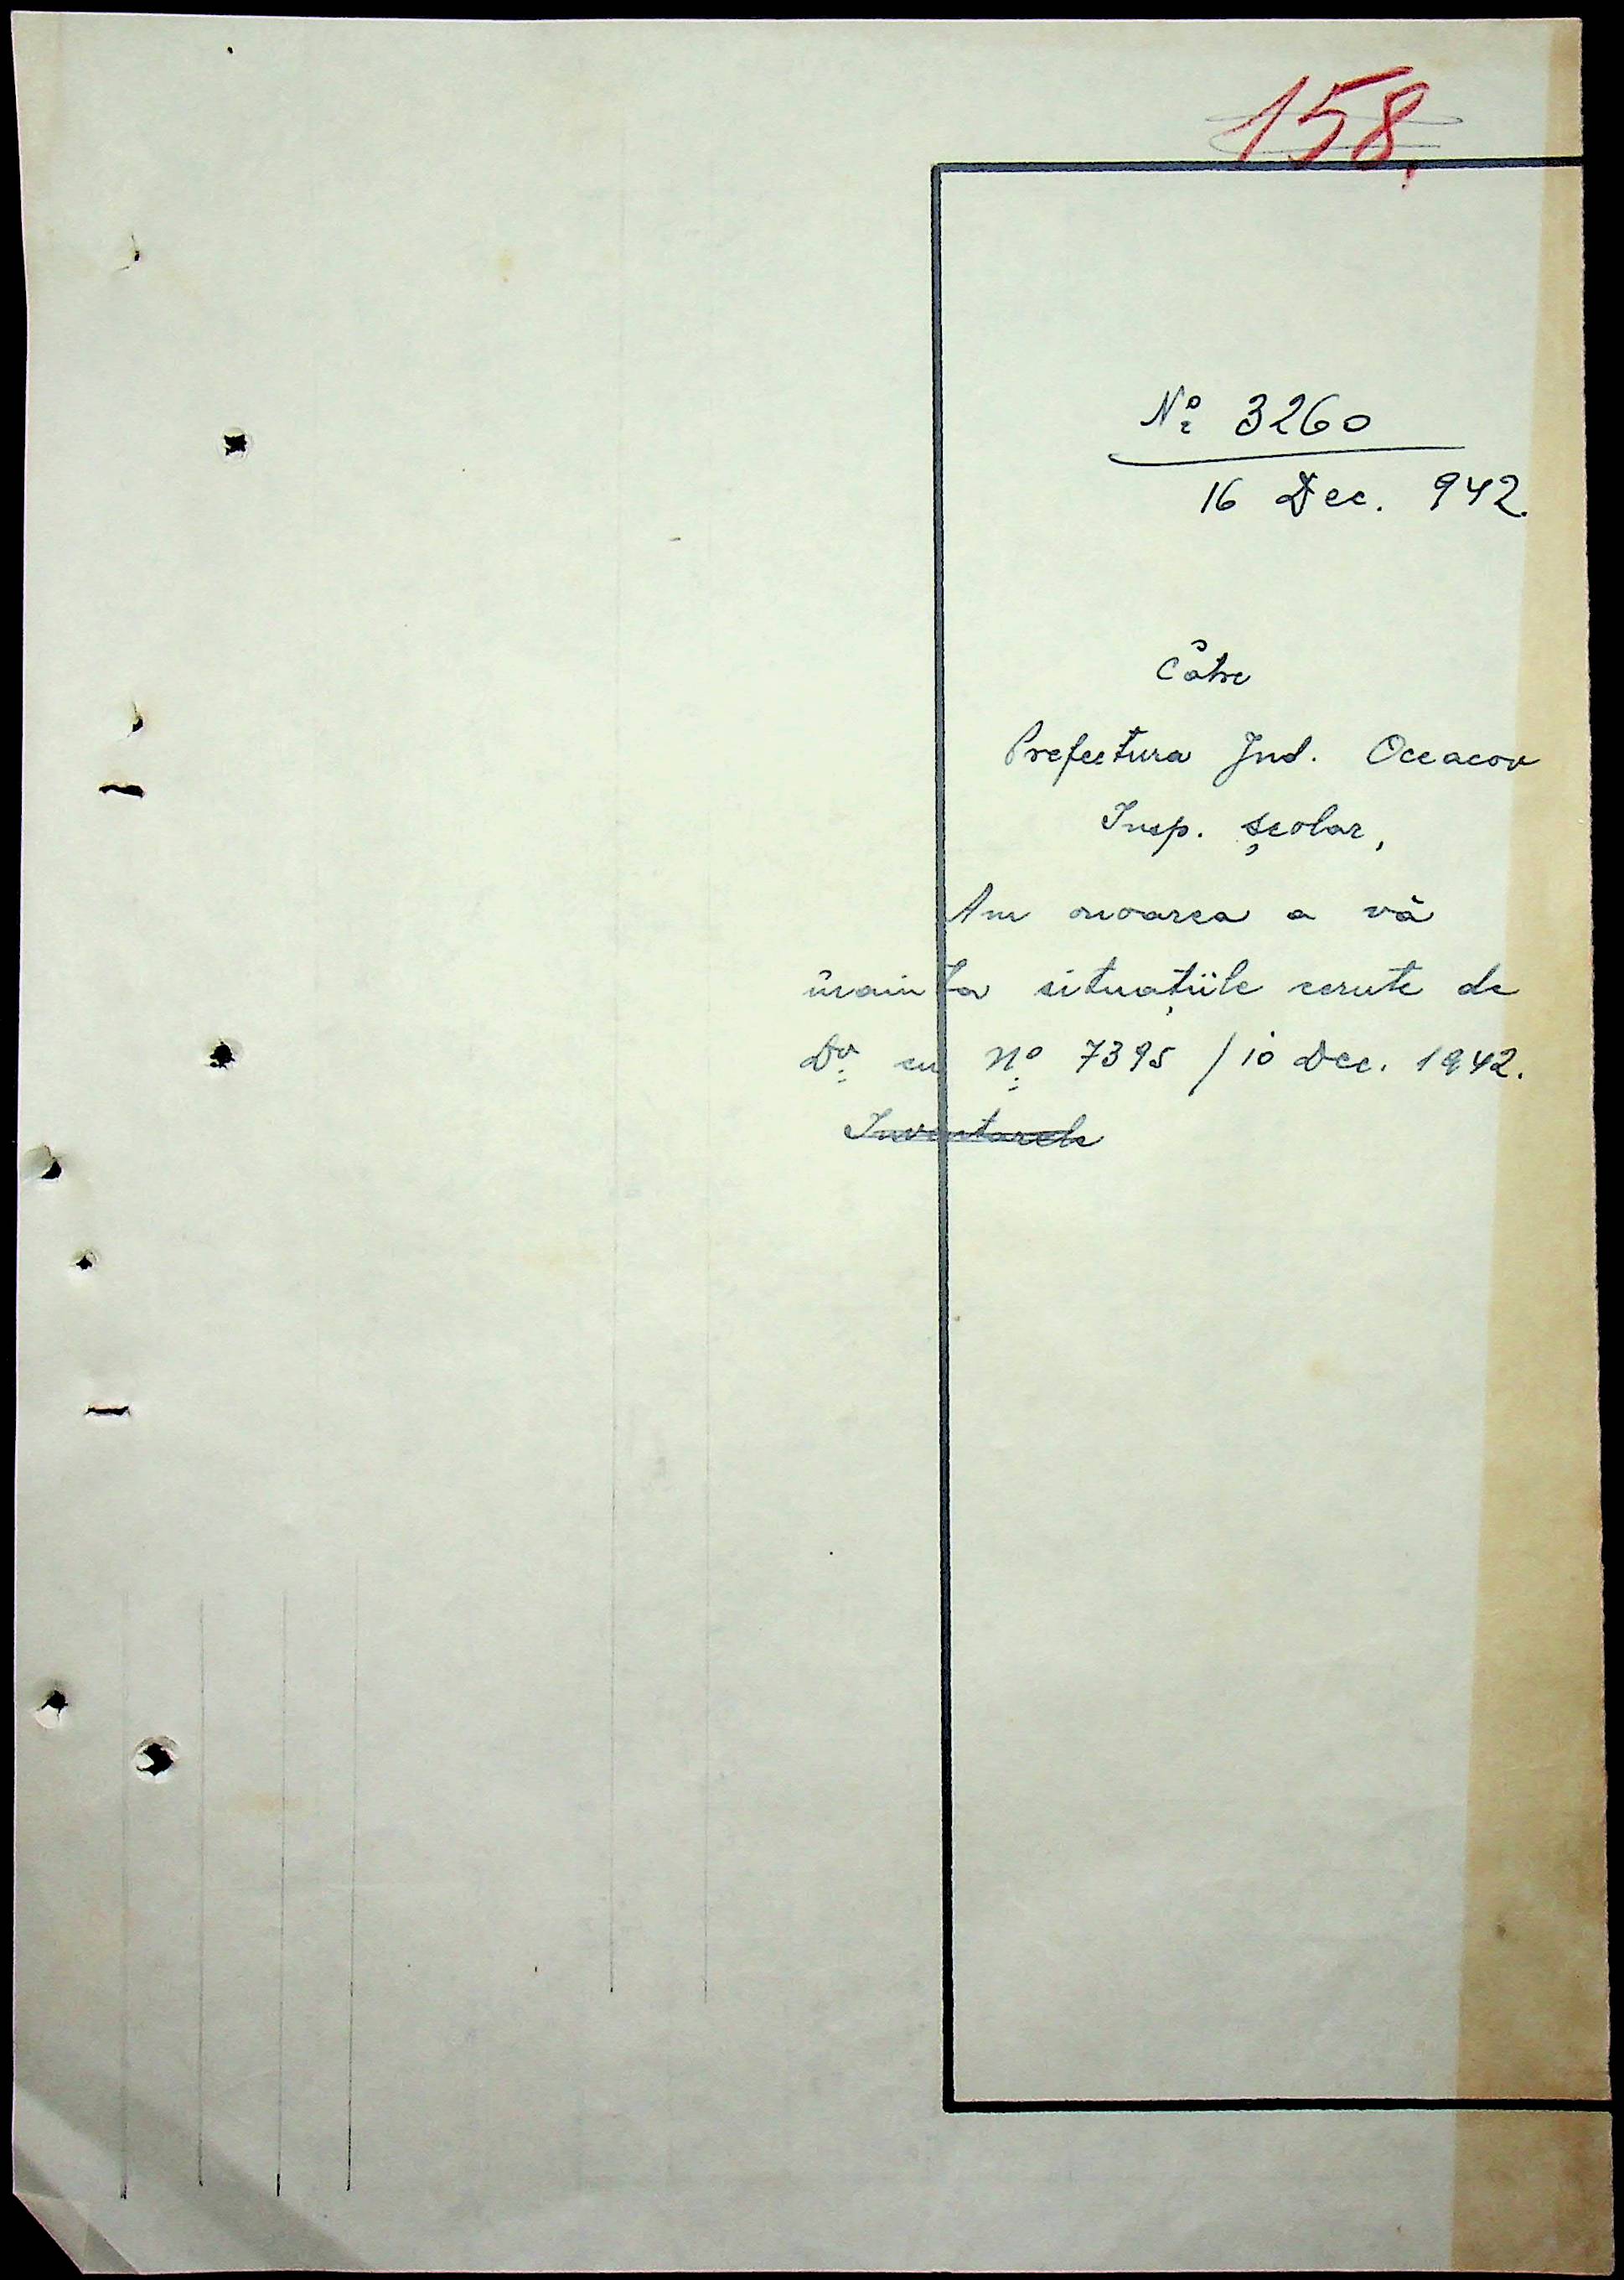 158.
No 3260
16 Dec. 942.
Către
Prefectura Jud. Oceacov
Insp. școlar,
Am onoarea a vă
înainta situațiile cerute de
Dv. cu No 7395 / 10 Dec. 1942.
Inventarele